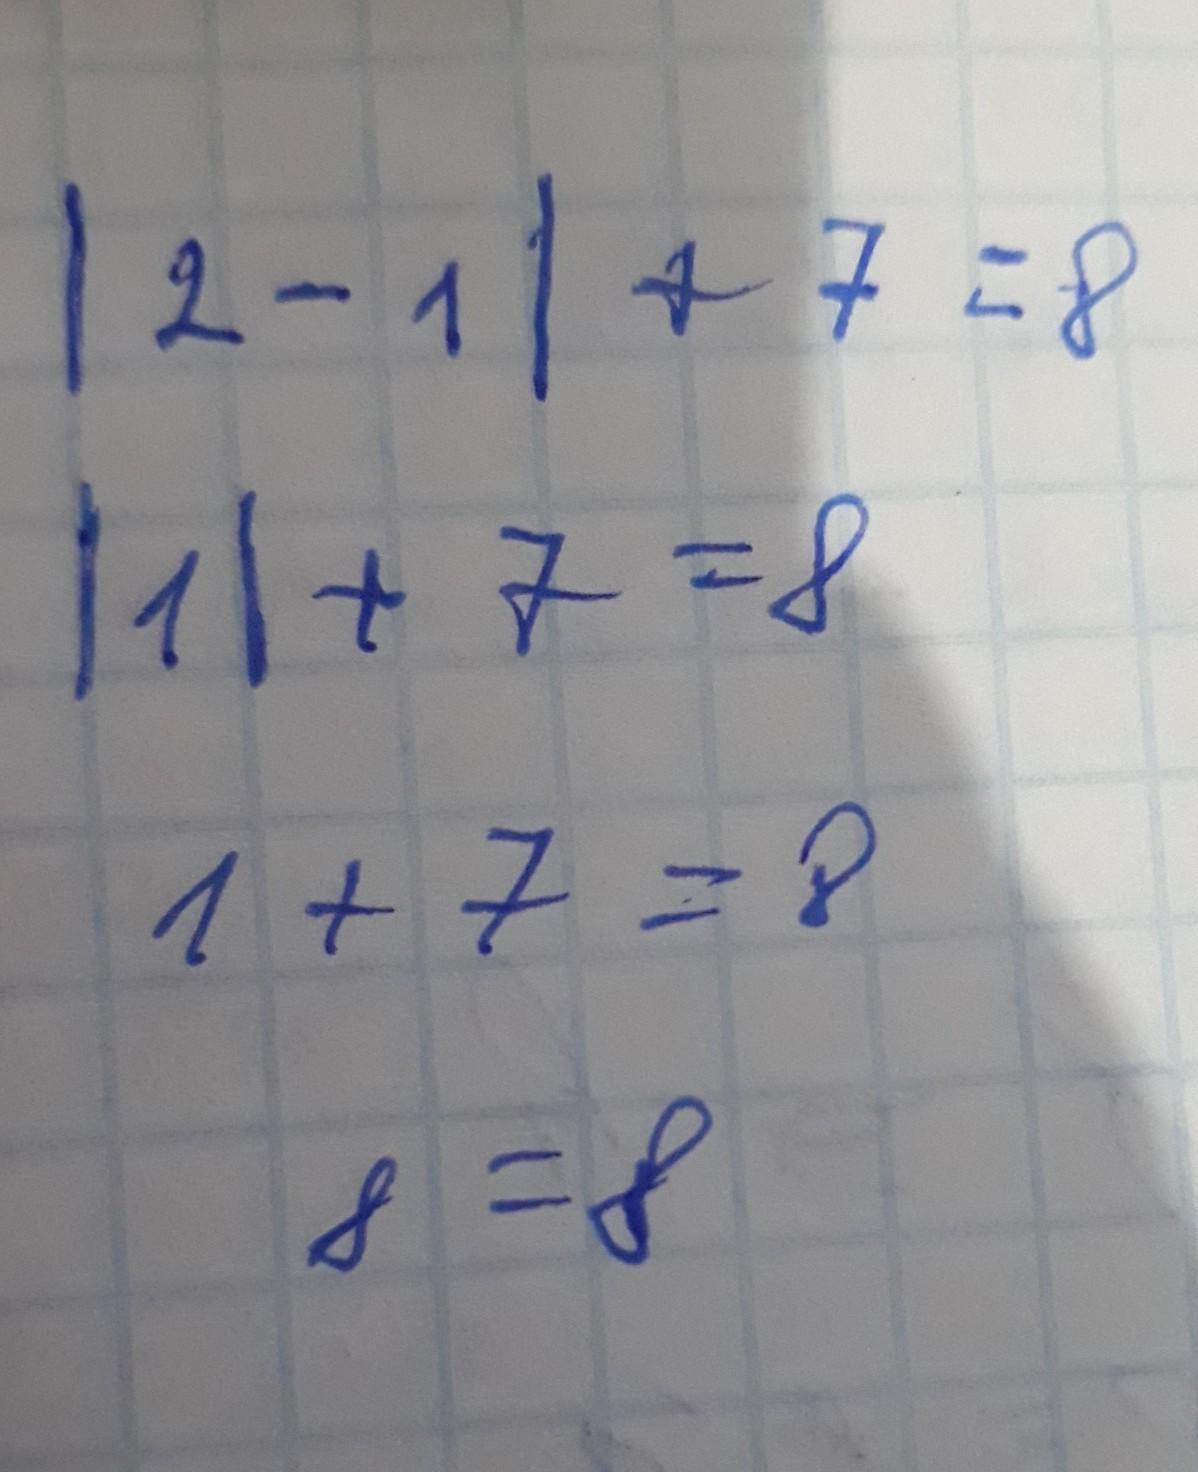 |2-1|+7=8
|1|+7=8
1+7=8
8=8